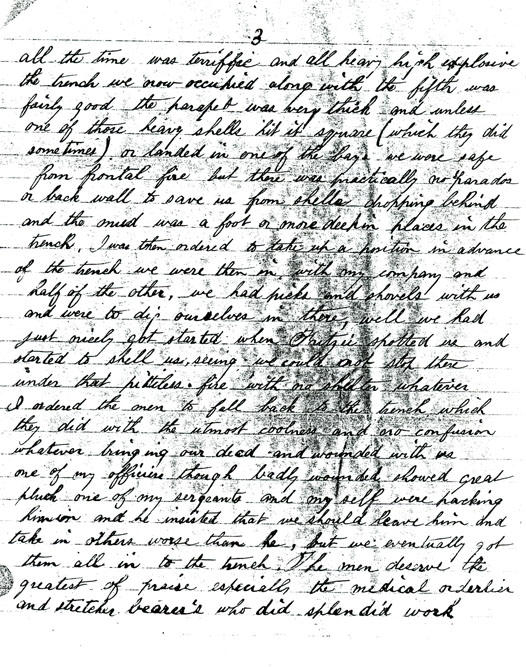 3
all the time was terriffic and all heavy high explosive
the trench we now occupied along with the fifth was
fairly good the parapet was very thick and unless
one of those heavy shells hit it square (which they did
sometimes) or landed in one of the bays we were safe
from frontal fire but there was practically no parados
or back wall to save us from shells dropping behind
and the mud was a foot or more deep in places in the
trench, I was then ordered to take up a position in advance
of the trench we were then in, with my company and
half of the other, we had picks and shovels with us
and were to dig ourselves in there, well we had
just nicely got started when Fritzie spotted us and
started to shell us, seeing we could not stop there
under that pitteless fire with no shelter whatever
I ordered the men to fall back to the trench which
they did with the utmost coolness and no confusion
whatever bringing our dead and wounded with us
one of my officers though badly wounded showed great
pluck one of my sergeants and myself were packing
him in and he insisted that we should leave him and
take in others worse than he, but we eventually got
them all in to the trench. The men deserve the
greatest of praise especially the medical orderlies
and stretcher bearer's who did splendid work